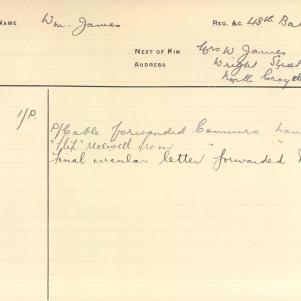 NAME Wm. James REG. &C. 48th Ba
NEXT OF KIN Mrs W James
ADDRESS Wright Street
North Croyd
1/P. P/Cable forwarded
" received from " "
Final circular letter forwarded